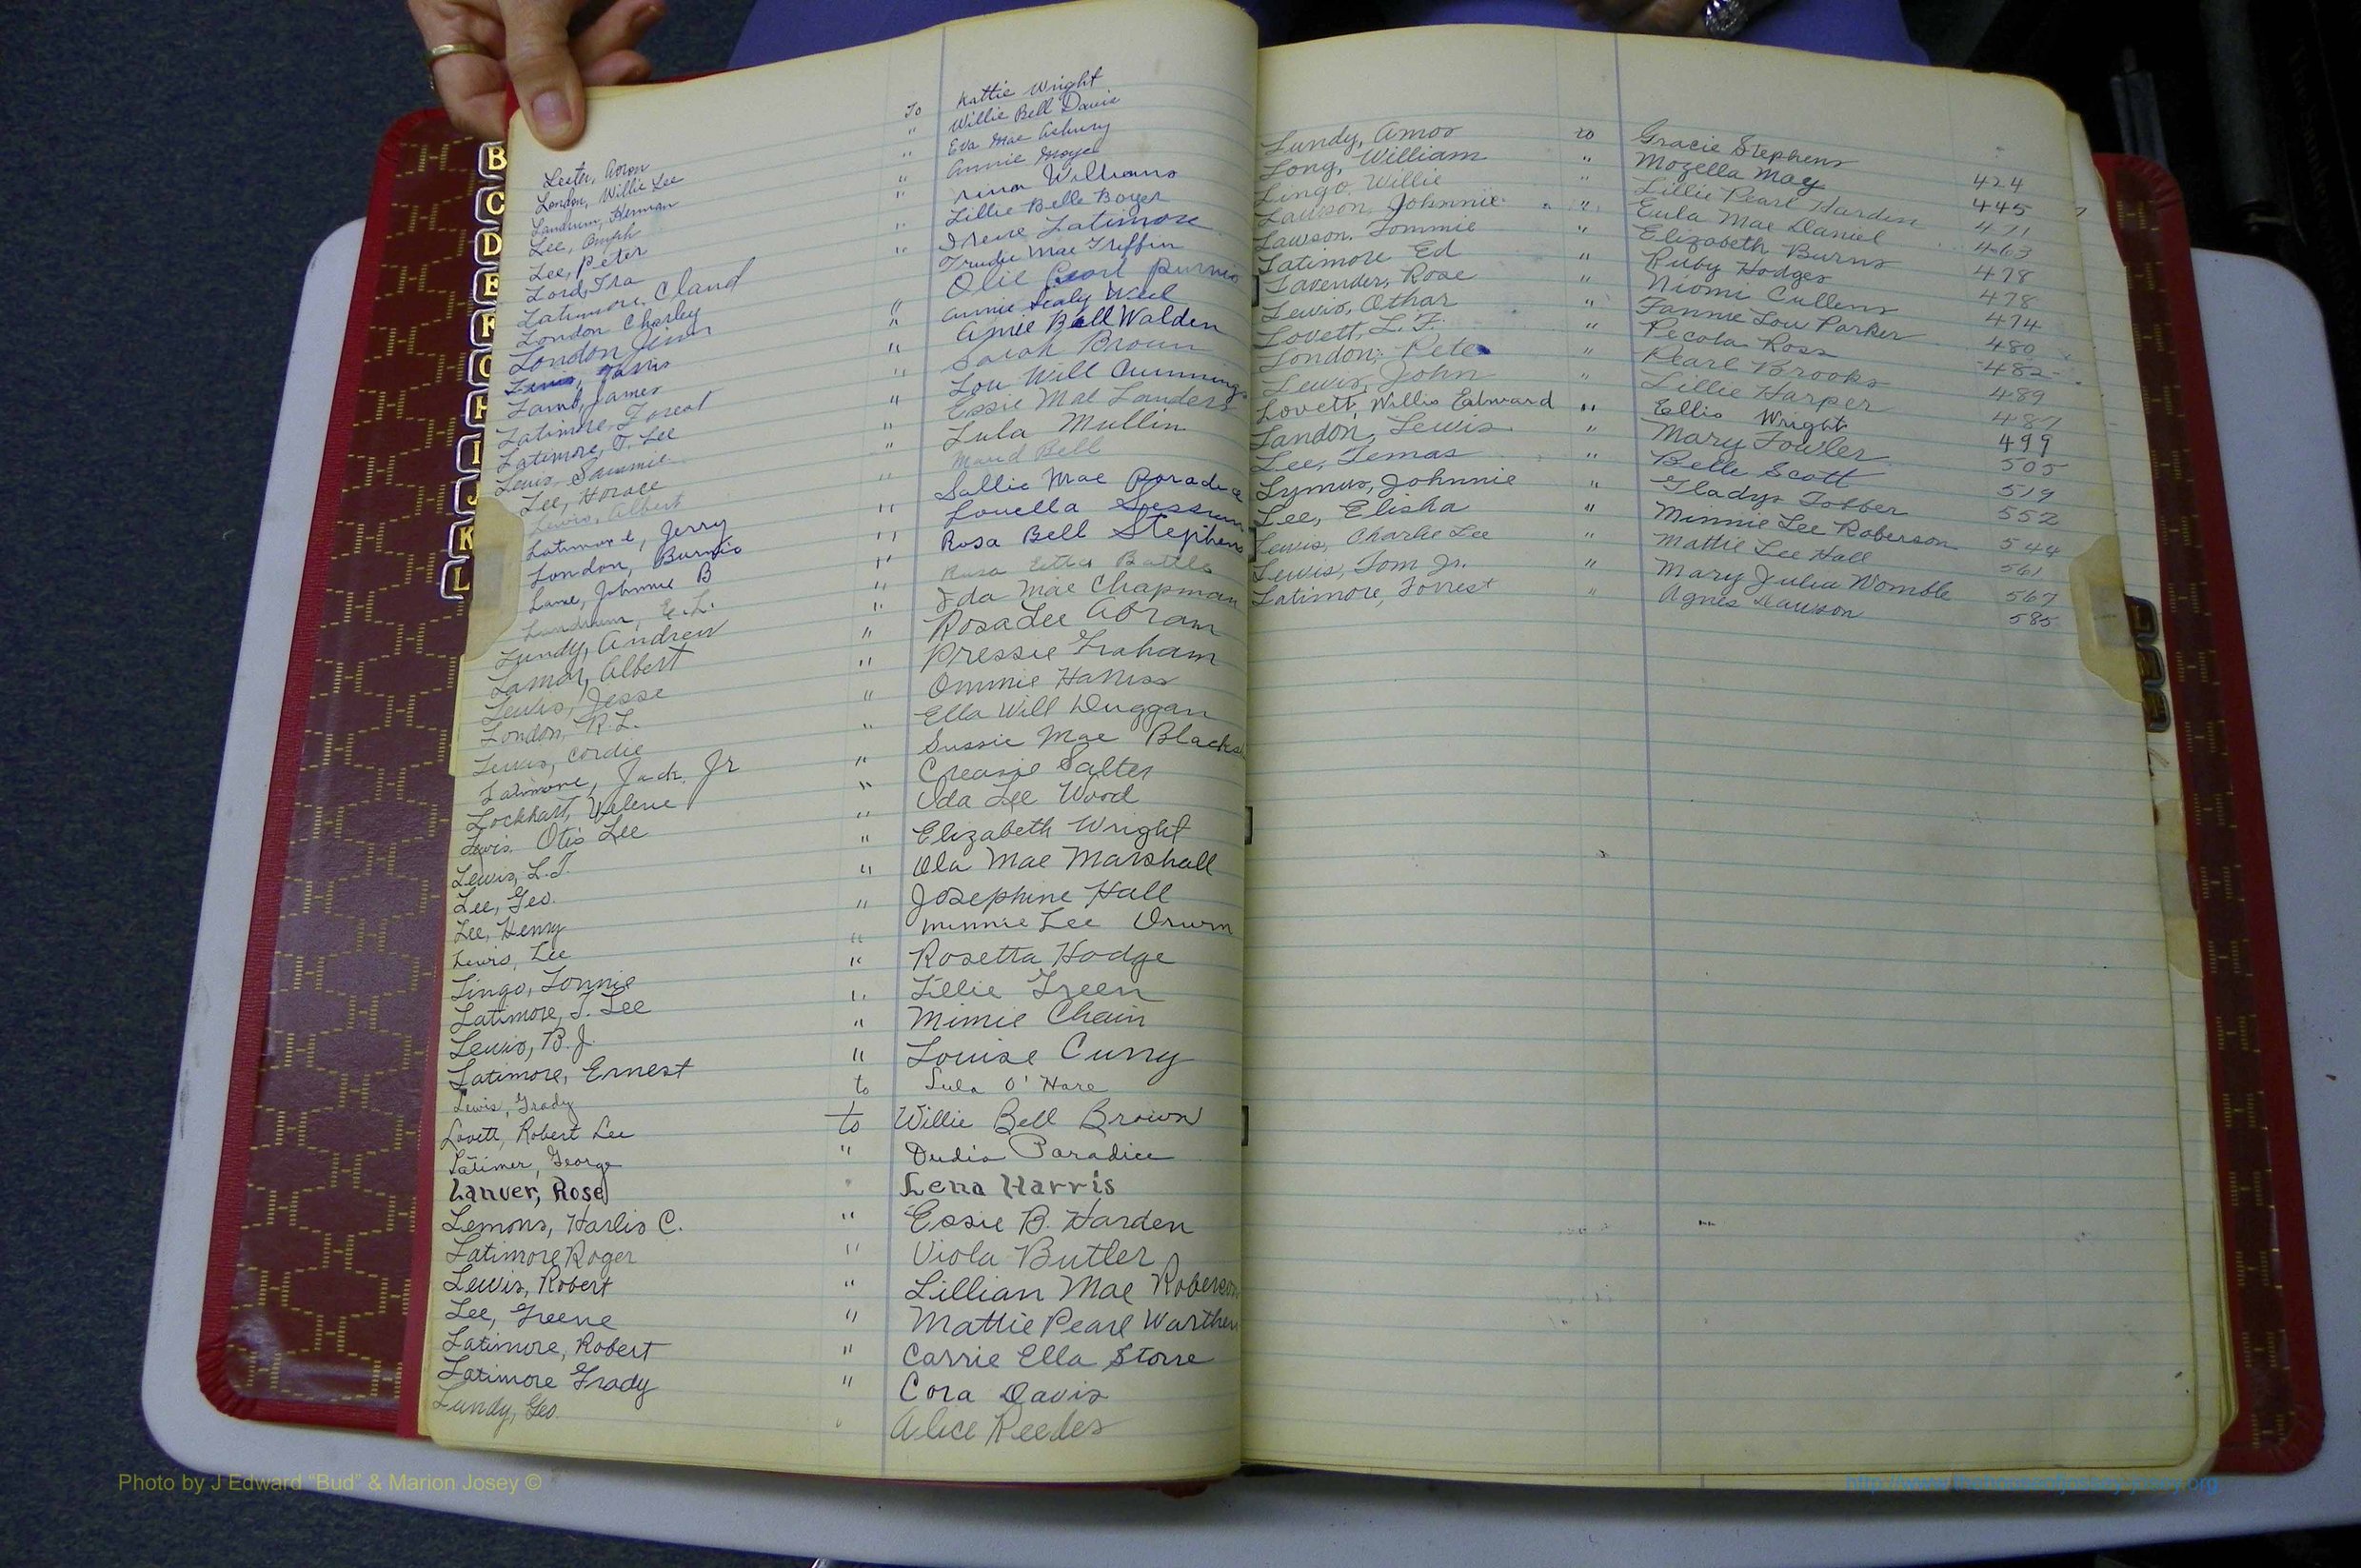 B
C
D
E
F
G
H
I
J
K
L
Lester, Aron To Kattie Wright
London, Willie Lee " Willie Bell Davis
Landrum, Herman " Eva Mae Asbury
Lee, " Annie Moye
Lee, Peter " Williams
Lord, Ira Lillie Belle Boyer
Latimore, Claud " Irene Latimore
London Charley " Trudie Mae Griffin
London Olie Pearl
Lewis, " Annie
Lamb, James " Amie Bell Walden
Latimore, Forest " Sarah Brown
Latimore, T. Lee " Lou Will Cummings
Lewis, Sammie " Essie Mae Landers
Lee, Horace " Lula Mullin
Lewis, Albert " Maud Bell
Latimore, Jerry " Sallie Mae Paradice
London, Burnis " Louella Sessum
Lane, Johnnie B " Rosa Bell Stephens
Landrum, E.L. " Rosa Etta Battle
Lundy, Andrew " Ida Mae Chapman
Lamar, Albert " Rosa Lee Abram
Lewis, Jesse " Pressie Graham
London, R.L. " Ommie Harriss
Lewis, Cordie " Ella Will Duggan
Latimore, Jack, Jr " Sussie Mae
Lockhart, Velerie " Creasie Salter
Lewis, Otis Lee " Ida Lee Wood
Lewis, L.T. " Elizabeth Wright
Lee, Geo. " Ola Mae Marshall
Lee, Henry " Josephine Hall
Lewis, Lee " Minnie Lee
Lingo, Lonnie " Rosetta Hodge
Latimore, J. Lee " Lillie Green
Lewis, B.J. " Mimie Chain
Latimore, Ernest " Louise Curry
Lewis, Grady to Lula O'Hare
Lovett, Robert Lee to Willie Bell Brown
Latimer, George " Dudia Paradice
Lanver, Rose " Lena Harris
Lemons, Harlis C. " Essie B. Harden
Latimore Roger " Viola Butler
Lewis, Robert " Lillian Mae Roberson
Lee, Greene " Mattie Pearl Warthen
Latimore, Robert " Carrie Ella Storre
Latimore Grady " Cora Davis
Lundy, Geo. " Alice Reedes
Lundy, Amos to Gracie Stephens 424
Long, William " Mozella May 445
Lingo, Willie " Lillie Pearl Harden 471
Lawson, Johnnie " Eula Mae Daniel 463
Lawson, Tommie " Elizabeth Burns 478
Latimore Ed " Ruby Hodges 478
Lavender, Rose " Niomi Cullens 474
Lewis, Othar " Fannie Lou Parker 480
Lovett, L.F. " Pecola Ross 482
London, Pete " Pearl Brooks 489
Lewis, John " Lillie Harper 487
Lovett, Willis Edward " Ellis Wright 499
Landon, Lewis " Mary Fowler 505
Lee, Temas " Belle Scott 519
Lymus, Johnnie " Gladys Tobber 552
Lee, Elisha " Minnie Lee Roberson 544
Lewis, Charlie Lee " Mattie Lee Hall 561
Lewis, Tom Jr. " Mary Julia Womble 567
Latimore, Forrest " Agnes Lawson 585
Photo by J Edward “Bud” & Marion Josey ©